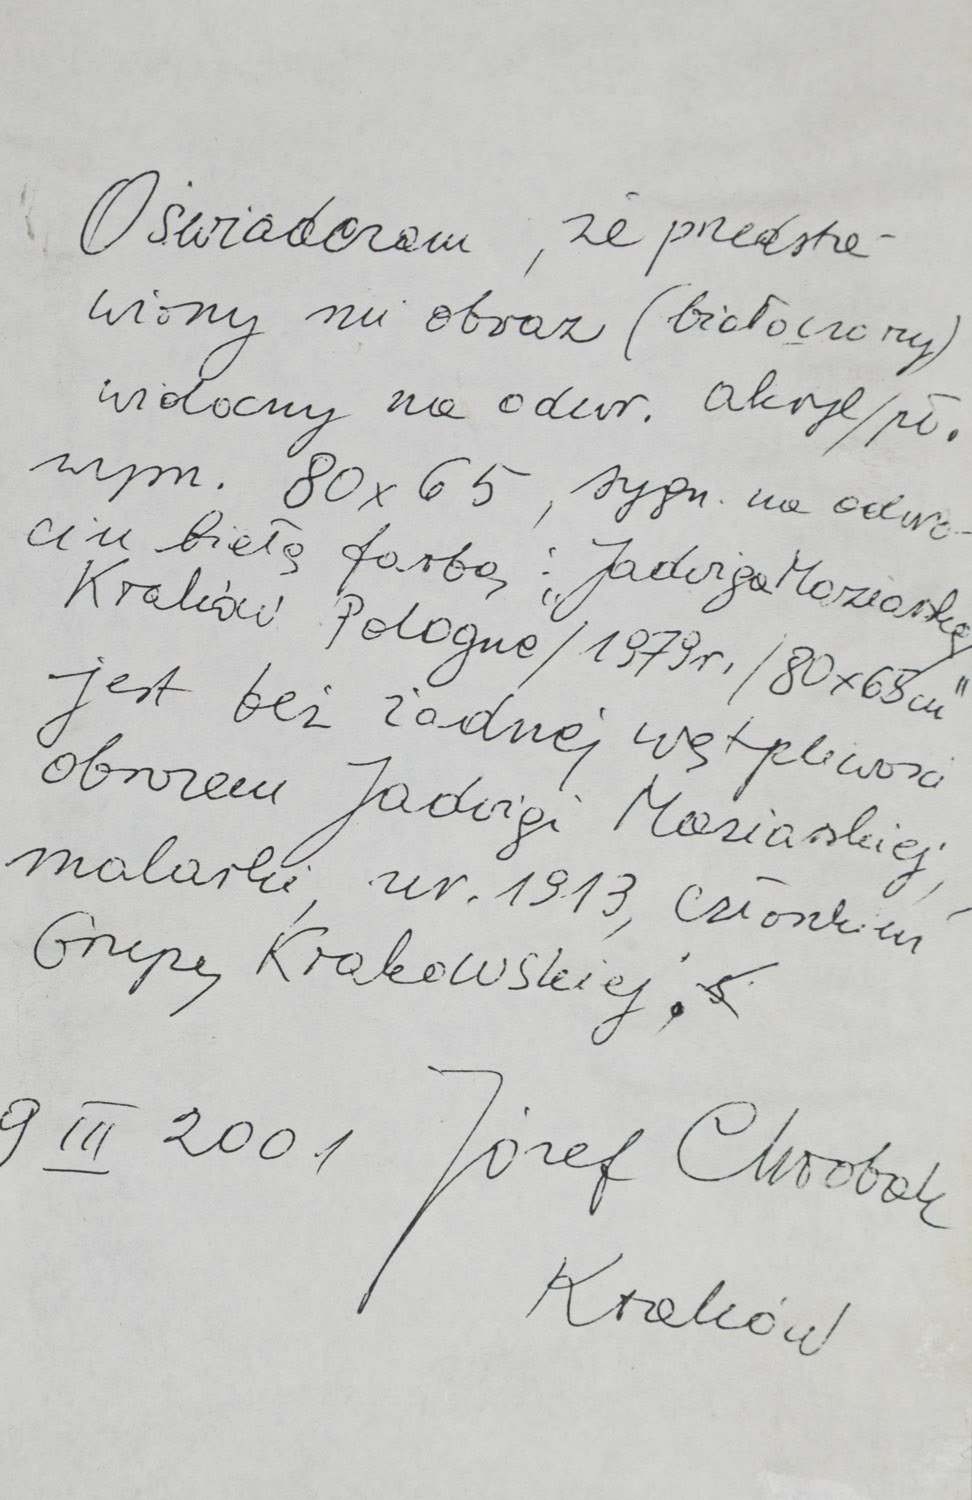 Oświadczam, że przedsta-
wiony mi obraz (białoczarny)
widoczny na odwr. akryl/pł.
wym. 80x65, sygn. na odwro-
ciu białą farbą: "Jadwiga Maziarska/
Kraków Pologne/1979r./80x65cm"
jest bez żadnej wątpliwości
obrazem Jadwigi Maziarskiej,
malarki, ur. 1913, członkini
Grupy Krakowskiej.
9 III 2001 Józef Chrobak
Kraków